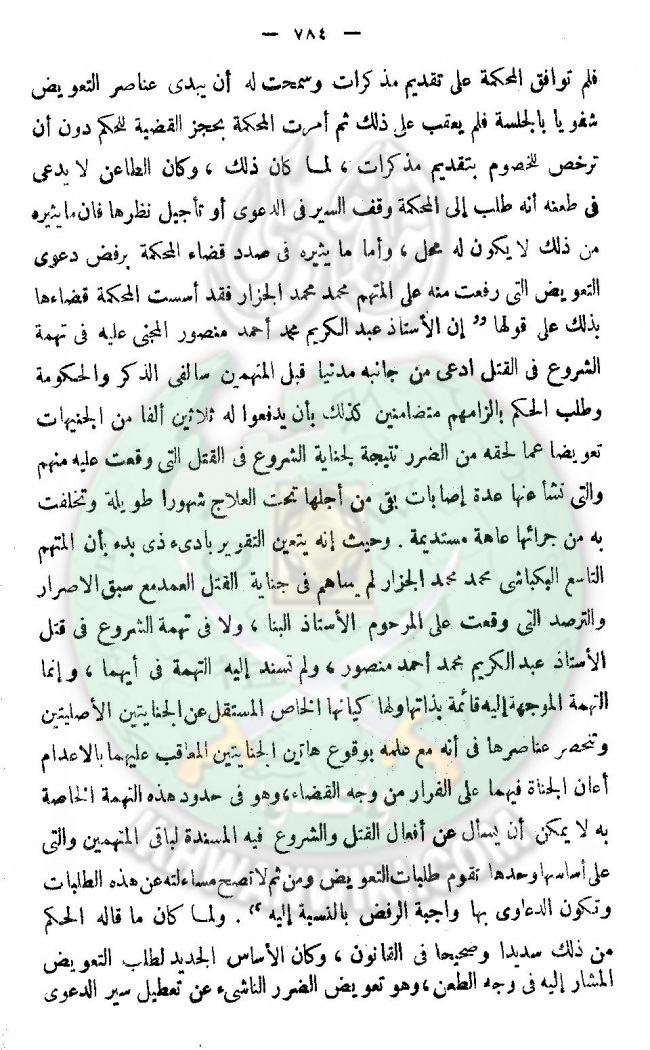 — ٧٨٤ —
فلم توافق المحكمة على تقديم مذكرات وسمحت له أن يبدى عناصر التعويض
شفويا بالجلسة فلم يعقب على ذلك ثم أمرت المحكمة بحجز القضية للحكم دون أن
ترخص للخصوم بتقديم مذكرات ، لما كان ذلك ، وكان الطاعن لا يدعى
فى طعنه أنه طلب إلى المحكمة وقف السير فى الدعوى أو تأجيل نظرها فان ما يثيره
من ذلك لا يكون له محل ، وأما ما يثيره فى صدد قضاء المحكمة برفض دعوى
التعويض التى رفعت منه على المتهم محمد محمد الجزار فقد أسست المحكمة قضاءها
بذلك على قولها " إن الأستاذ عبد الكريم محمد أحمد منصور المجنى عليه فى تهمة
الشروع فى القتل ادعى من جانبه مدنيا قبل المتهمين سالفى الذكر والحكومة
وطلب الحكم بالزامهم متضامنين كذلك بأن يدفعوا له ثلاثين ألفا من الجنيهات
تعويضا عما لحقه من الضرر نتيجة لجناية الشروع فى القتل التى وقعت عليه منهم
والتى نشأ عنها عدة إصابات بقى من أجلها تحت العلاج شهورا طويلة وتخلفت
به من جرائها عاهة مستديمة . وحيث إنه يتعين التقرير بادىء ذى بدء بأن المتهم
التاسع البكباشى محمد محمد الجزار لم يساهم فى جناية القتل العمد مع سبق الاصرار
والترصد التى وقعت على المرحوم الأستاذ البنا ، ولا فى تهمة الشروع فى قتل
الأستاذ عبد الكريم محمد أحمد منصور ، ولم تسند إليه التهمة فى أيهما ، وإنما
التهمة الموجهة إليه قائمة بذاتها ولها كيانها الخاص المستقل عن الجنايتين الأصليتين
وتنحصر عناصرها فى أنه مع علمه بوقوع هاتين الجنايتين المعاقب عليهما بالاعدام
أعان الجناة فيهما على الفرار من وجه القضاء ، وهو فى حدود هذه التهمة الخاصة
به لا يمكن أن يسأل عن أفعال القتل والشروع فيه المسندة لباقى المتهمين والتى
على أساسها وحدها تقوم طلبات التعويض ومن ثم لا تصح مساءلته عن هذه الطلبات
وتكون الدعاوى بها واجبة الرفض بالنسبة إليه " . ولما كان ما قاله الحكم
من ذلك سديدا وصحيحا فى القانون ، وكان الأساس الجديد لطلب التعويض
المشار إليه فى وجه الطعن ، وهو تعويض الضرر الناشىء عن تعطيل سير الدعوى
IKHWANWIKI.COM